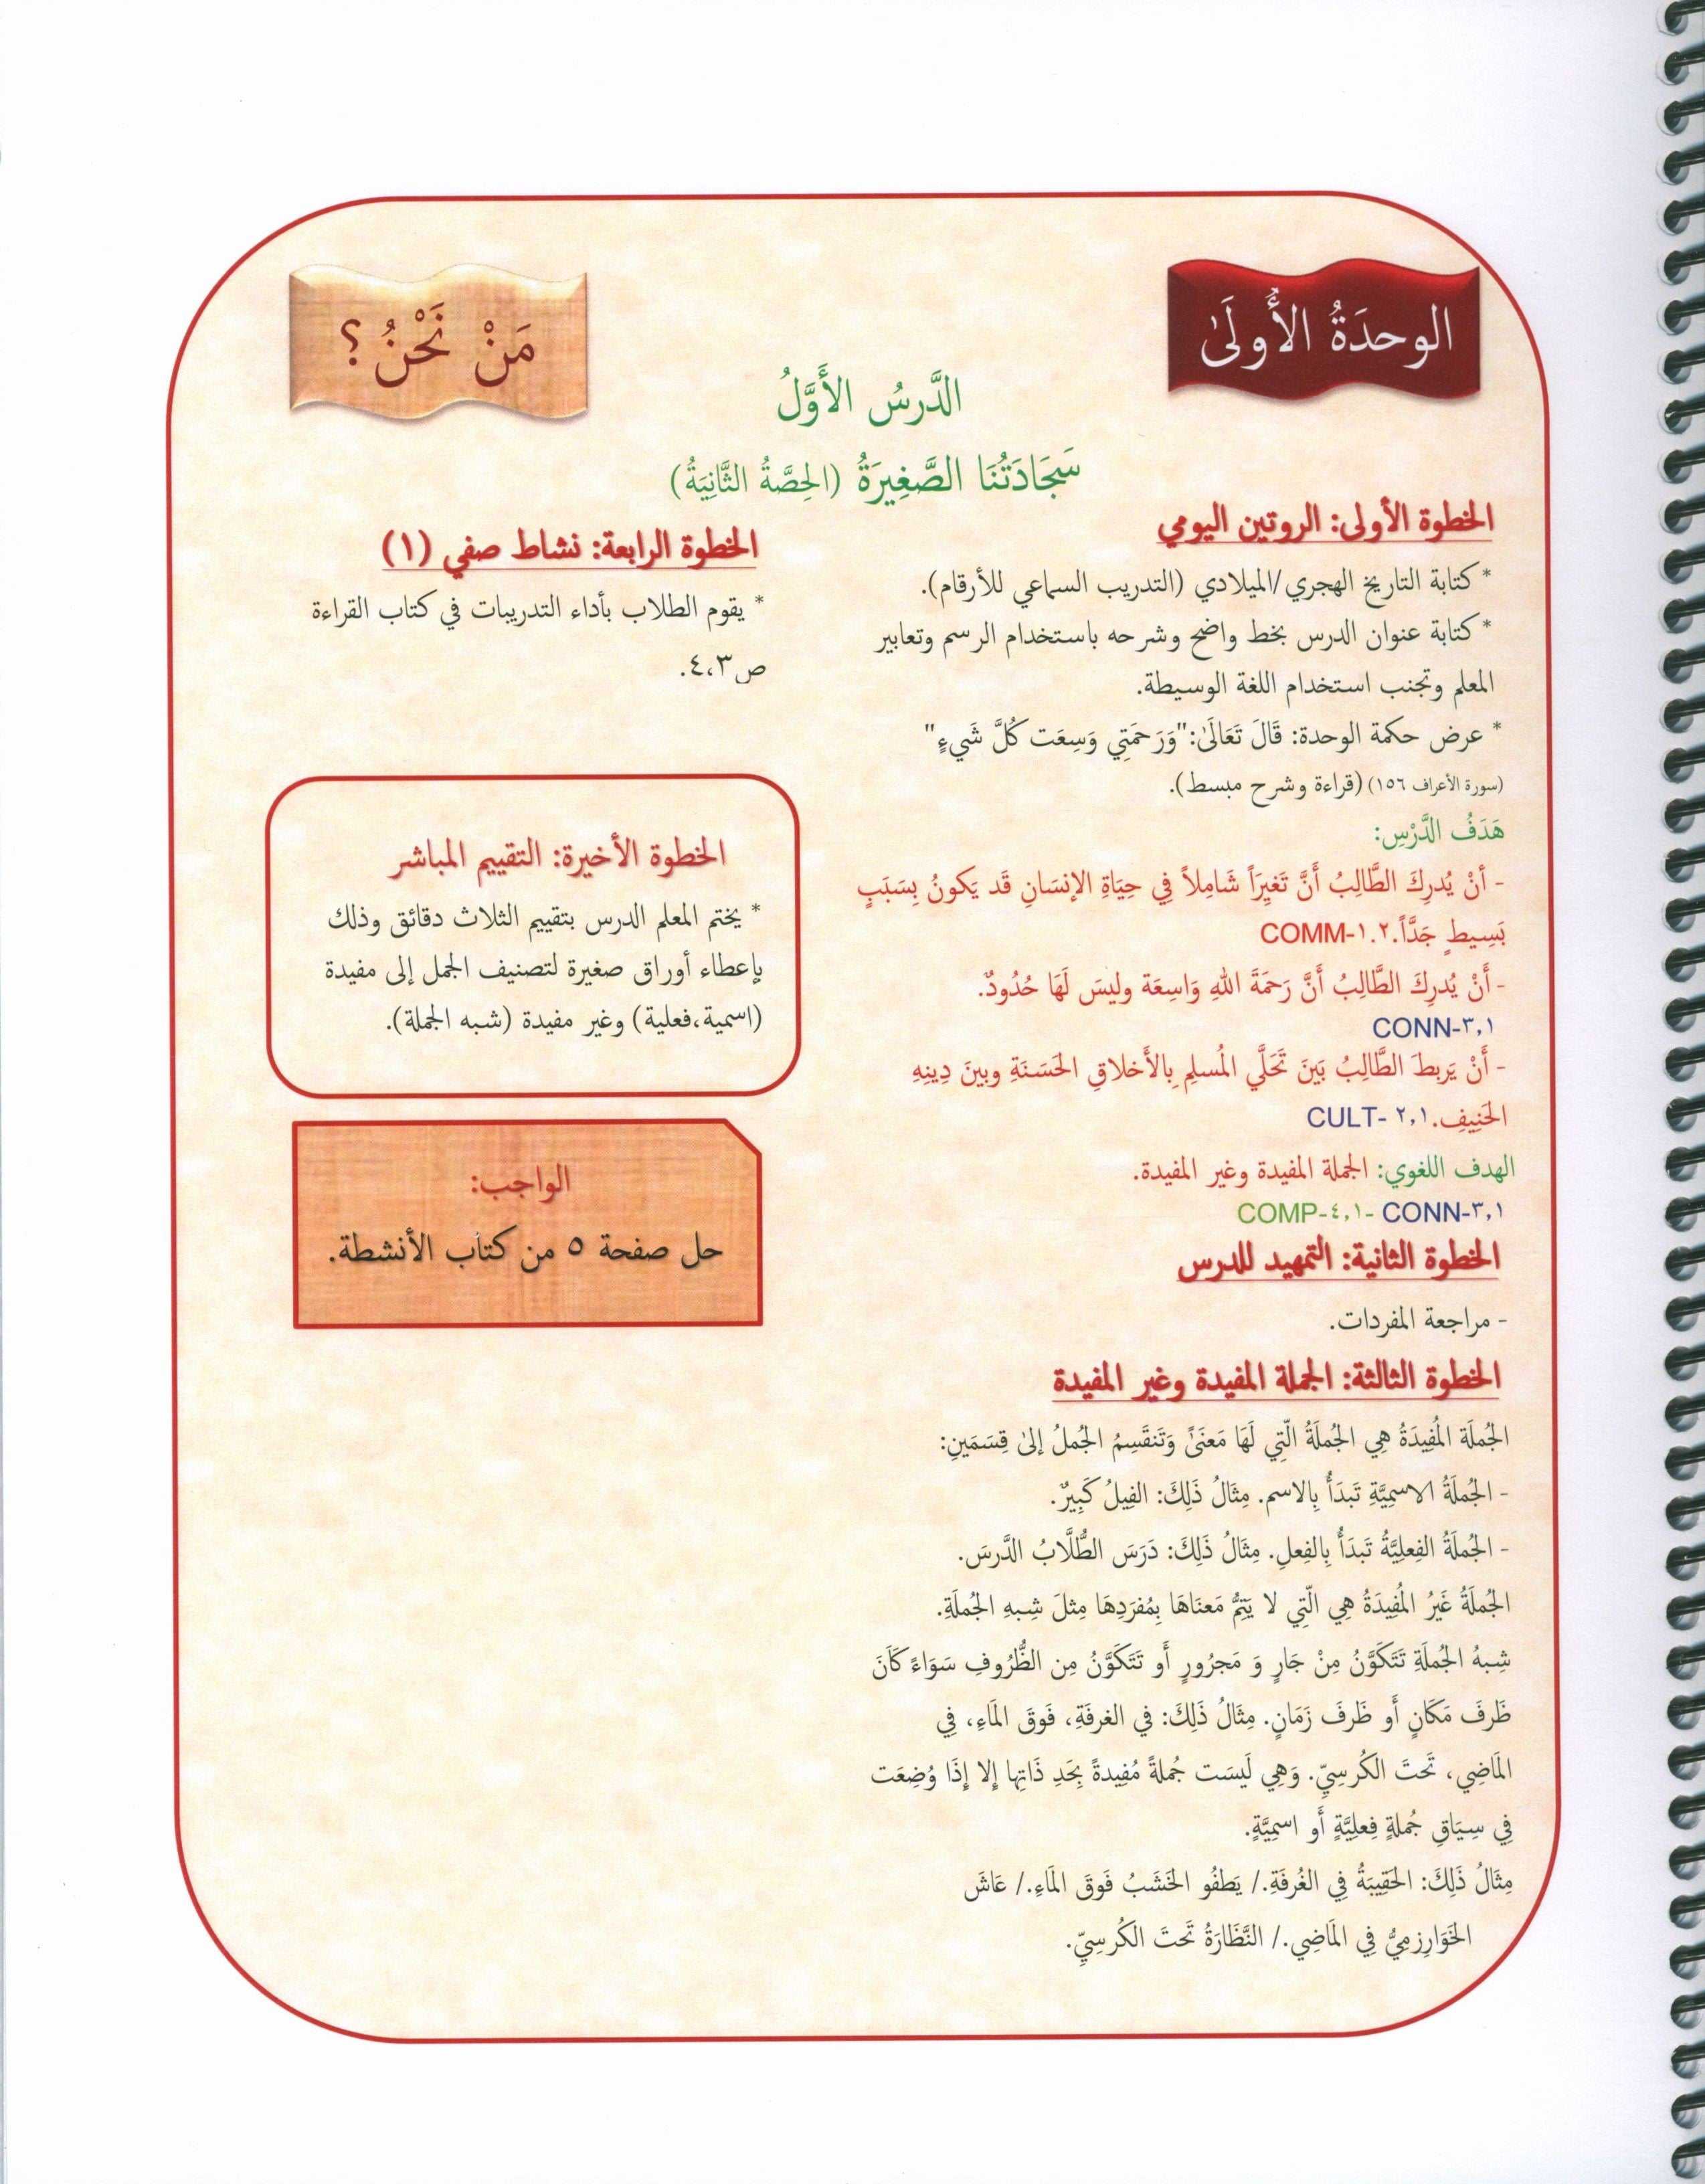 الوحدَةُ الأُولَىٰ
مَنْ نَحْنُ؟
الدَّرسُ الأَوَّلُ
سَجَادَتُنَا الصَّغِيرَةُ (الحِصَّةُ الثَّانِيَةُ)
الخطوة الأولى: الروتين اليومي
* كتابة التاريخ الهجري/الميلادي (التدريب السماعي للأرقام).
* كتابة عنوان الدرس بخط واضح وشرحه باستخدام الرسم وتعابير
المعلم وتجنب استخدام اللغة الوسيطة.
* عرض حكمة الوحدة: قَالَ تَعَالَىٰ:"وَرَحمَتِي وَسِعَت كُلَّ شَيءٍ"
(سورة الأعراف ١٥٦) (قراءة وشرح مبسط).
هَدَفُ الدَّرْسِ:
- أنْ يُدرِكَ الطَّالِبُ أَنَّ تَغيِرَاً شَامِلاً فِي حِيَاةِ الإنسَانِ قَد يَكونُ بِسَبَبٍ
بَسِيطٍ جَدَّاً.COMM-١.٢
- أَنْ يُدرِكَ الطَّالِبُ أَنَّ رَحمَةَ اللهِ وَاسِعَة وليسَ لَهَا حُدُودٌ.
CONN-٣,١
- أَنْ يَربطَ الطَّالِبُ بَينَ تَحَلَّي المُسلِمِ بِالأَخلاقِ الحَسَنَةِ وبينَ دِينِهِ
الحَنِيفِ.CULT- ٢,١
الهدف اللغوي: الجملة المفيدة وغير المفيدة.
COMP-٤,١- CONN-٣,١
الخطوة الثانية: التمهيد للدرس
- مراجعة المفردات.
الخطوة الثالثة: الجملة المفيدة وغير المفيدة
الجُملَة المُفِيدَةُ هِي الجُملَةُ الّتِي لَهَا مَعنَىً وَتَنقَسِمُ الجُملُ إلىٰ قِسَمَينِ:
- الجُملَةُ الاسمِيَّةِ تَبدَأُ بِالاسم. مِثَالُ ذَلِكَ: الفِيلُ كَبِيرٌ.
- الجُملَةُ الفِعلِيَّةُ تَبدَأُ بِالفِعلِ. مِثَالُ ذَلِكَ: دَرَسَ الطُّلَّابُ الدَّرسَ.
الجُملَةُ غَيرُ المُفِيدَةُ هِي الّتِي لا يَتِمُّ مَعنَاهَا بِمُفرَدِهَا مِثلَ شِبهِ الجُملَةِ.
شِبهُ الجُملَةِ تَتَكَوَّنُ مِنْ جَارٍ وَ مَجرُورٍ أَو تَتَكَوَّنُ مِن الظُّرُوفِ سَوَاءً كَانَ
ظَرفَ مَكَانٍ أَو ظَرفَ زَمَانٍ. مِثَالُ ذَلِكَ: في الغرفَةِ، فَوقَ المَاءِ، فِي
المَاضِي، تَحتَ الكُرسِيِّ. وَهِي لَيسَت جُملةً مُفِيدةً بِحَدِ ذَاتِها إِلا إِذَا وُضِعَت
فِي سِيَاقِ جُملةٍ فِعلِيَّةٍ أَو اسمِيَّةٍ.
مِثَالُ ذَلِكَ: الحَقِيبَةُ فِي الغُرفَةِ./ يَطفُو الخَشَبُ فَوقَ المَاءِ./ عَاشَ
الخَوَارِزمِيُّ فِي المَاضِي./ النَّظَارَةُ تَحتَ الكُرسِيِّ.
الخطوة الرابعة: نشاط صفي (١)
* يقوم الطلاب بأداء التدريبات في كتاب القراءة
ص٤،٣.
الخطوة الأخيرة: التقييم المباشر
* يختم المعلم الدرس بتقييم الثلاث دقائق وذلك
بإعطاء أوراق صغيرة لتصنيف الجمل إلى مفيدة
(اسمية،فعلية) وغير مفيدة (شبه الجملة).
الواجب:
حل صفحة ٥ من كتاب الأنشطة.